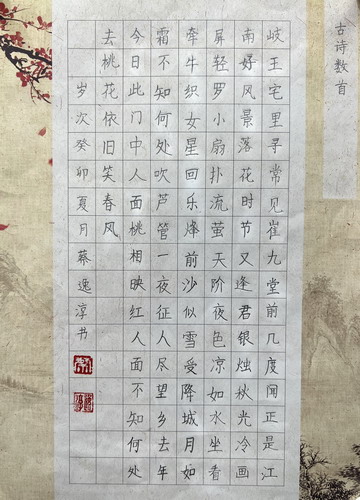 古诗数首
岐王宅里寻常见崔九堂前几度闻正是江
南好风景落花时节又逢君银烛秋光冷画
屏轻罗小扇扑流萤天阶夜色凉如水坐看
牵牛织女星回乐烽前沙似雪受降城月如
霜不知何处吹芦管一夜征人尽望乡去年
今日此门中人面桃相映红人面不知何处
去桃花依旧笑春风
岁次癸卯夏月蔡逸淳书